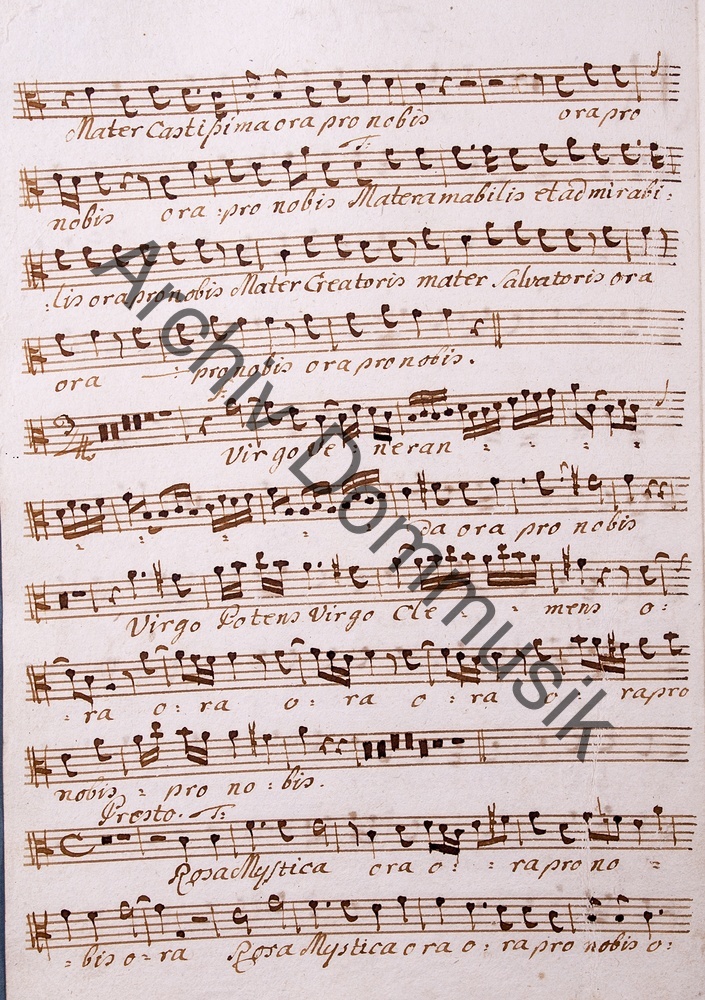 Mater Castißima ora pro nobis ora pro
T:
nobis ora : pro nobis Mater amabilis et admirabi :
: lis ora pro nobis Mater Creatoris mater Salvatoris ora
ora : pro nobis ora pro nobis .
Virgo Ve : neran : : : :
: : : : da ora pro nobis
Virgo Potens Virgo Cle : : mens o :
: ra o : ra o : ra o : ra o : ra pro
nobis : pro no : bis .
Presto . T :
Rosa Mystica ora o : : ra pro no =
= bis o = ra Rosa Mystica ora o : ra pro nobis o :
Archiv Dommusik